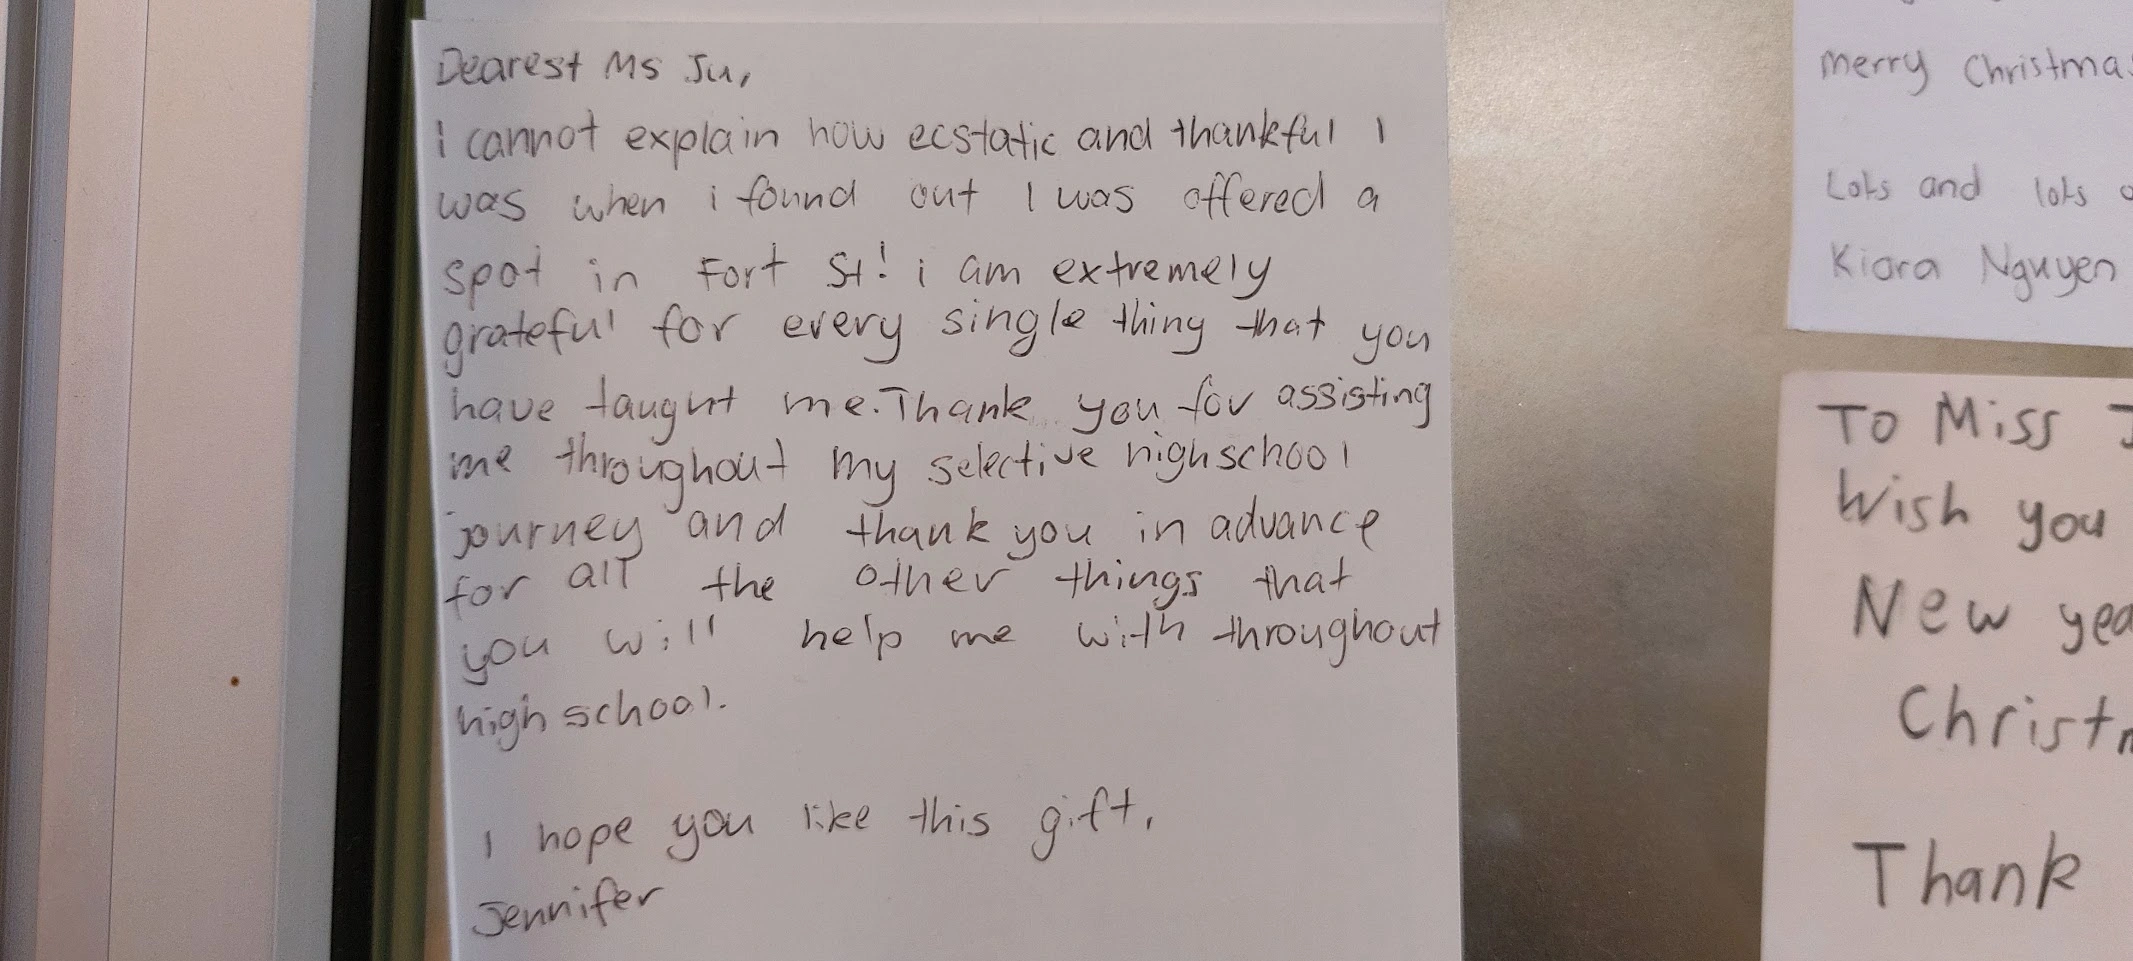 Dearest Ms Ju,
i cannot explain how ecstatic and thankful I
was when i found out I was offered a
spot in Fort St! i am extremely
grateful for every single thing that you
have taught me. Thank you for assisting
me throughout my selective highschool
journey and thank you in advance
for all the other things that
you will help me with throughout
high school.
I hope you like this gift.
Jennifer
merry Christma
Lots and lots
Kiara Nguyen
To Miss J
Wish you
New yea
Christ
Thank